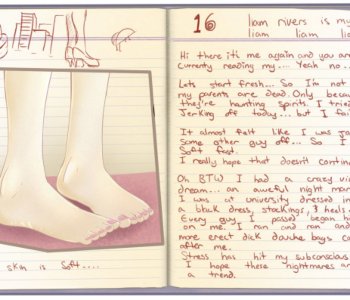 16 liam rivers is my
liam liam li
Hi there it's me again and you are
Currently reading my.... Yeah no..
Lets start fresh... So I'm not
my parents are dead. Only becau
they're haunting spirits. I tried
Jerking off today... but I fai
It almost felt like I was ja
Some other guy off... So I
Soft feet.
I really hope that doesn't contin
Oh BTW I had a crazy vi
dream... an aweful night mar
I was at university dressed in
a black dress, stockings, & heels.
Every guy I passed began hi
on me. I ran and ran and
more erect dick douche bags co
after me.
Stress has hit my subconscious
I hope these nightmares ar
a trend.
skin is soft....